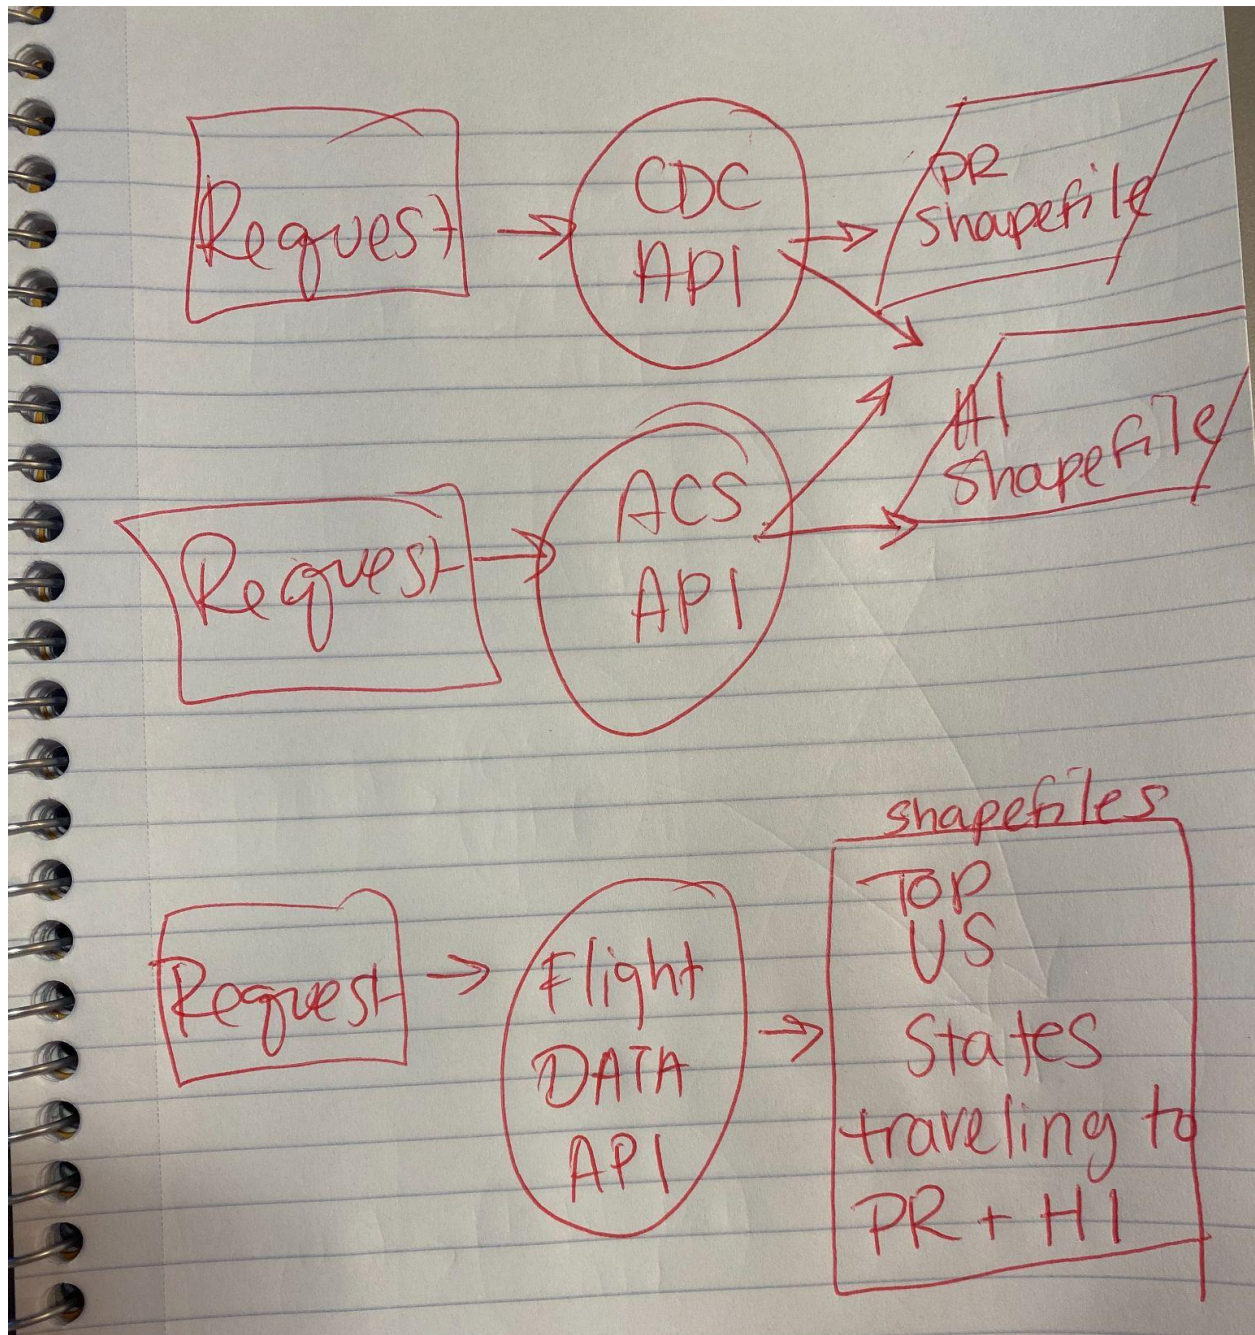 Request
CDC
API
PR
shapefile
HI
shapefile
Request
ACS
API
shapefiles
Request
Flight
DATA
API
TOP
US
States
traveling to
PR + HI